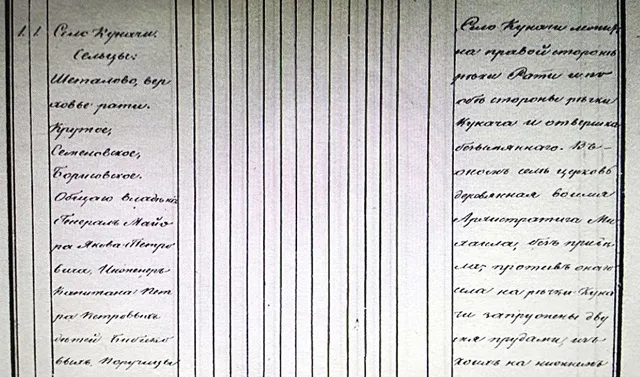 1. 1. Село Кукачи.
Сельцы:
Шеталово, вер
ховье рати.
Крутое,
Семеновское,
Борисовское.
Общаго владѣнія
Генералъ Майо
ра Якова Петро
вича, Инженеръ
Капитана Пет
ра Петровыхъ
дѣтей
выхъ, Поручицы
Село Кукачи
на правой сторонѣ
рѣчки Рати и по
обѣ стороны рѣчки
Кукача и отвершка
безъимяннаго. Въ
ономъ селѣ церковь
деревянная во имя
Архистратига Ми
хаила, безъ придѣ
ла; противъ онаго
села на рѣчкѣ Кука
чи запружены дву
мя прудами, изъ
коихъ на нижнемъ